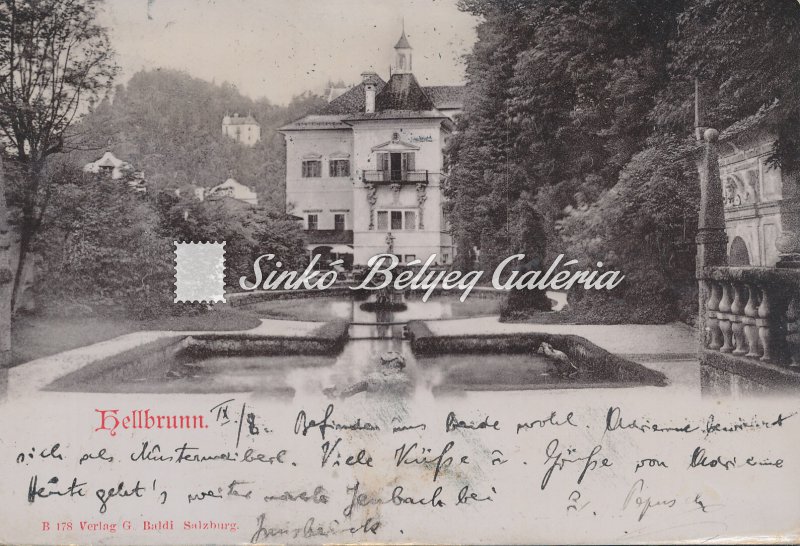 Sinkó Bélyeg Galéria
Hellbrunn. IX/8. Befinden uns Beide wohl. Adrienne bewährt
sich als Mustermeiberl. Viele Küsse u. Grüße von Adrienne
Heute geht's weiter nach Jenbach bei u. Papus
Innsbruck.
B 178 Verlag G. Baldi Salzburg.